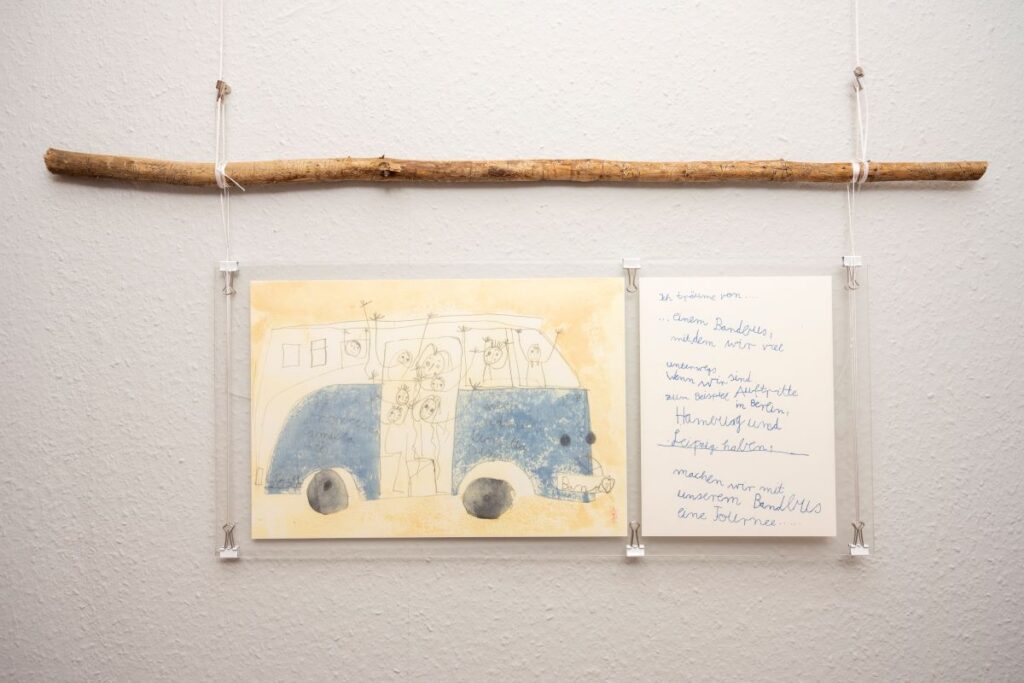 Band
Ich träume von....
...einem Bandbus,
mit dem wir viel
unterwegs sind
Wenn wir
zum Beispiel Auftritte
in Berlin,
Hamburg und
Leipzig haben:
machen wir mit
unserem Bandbus
eine Tournee.....